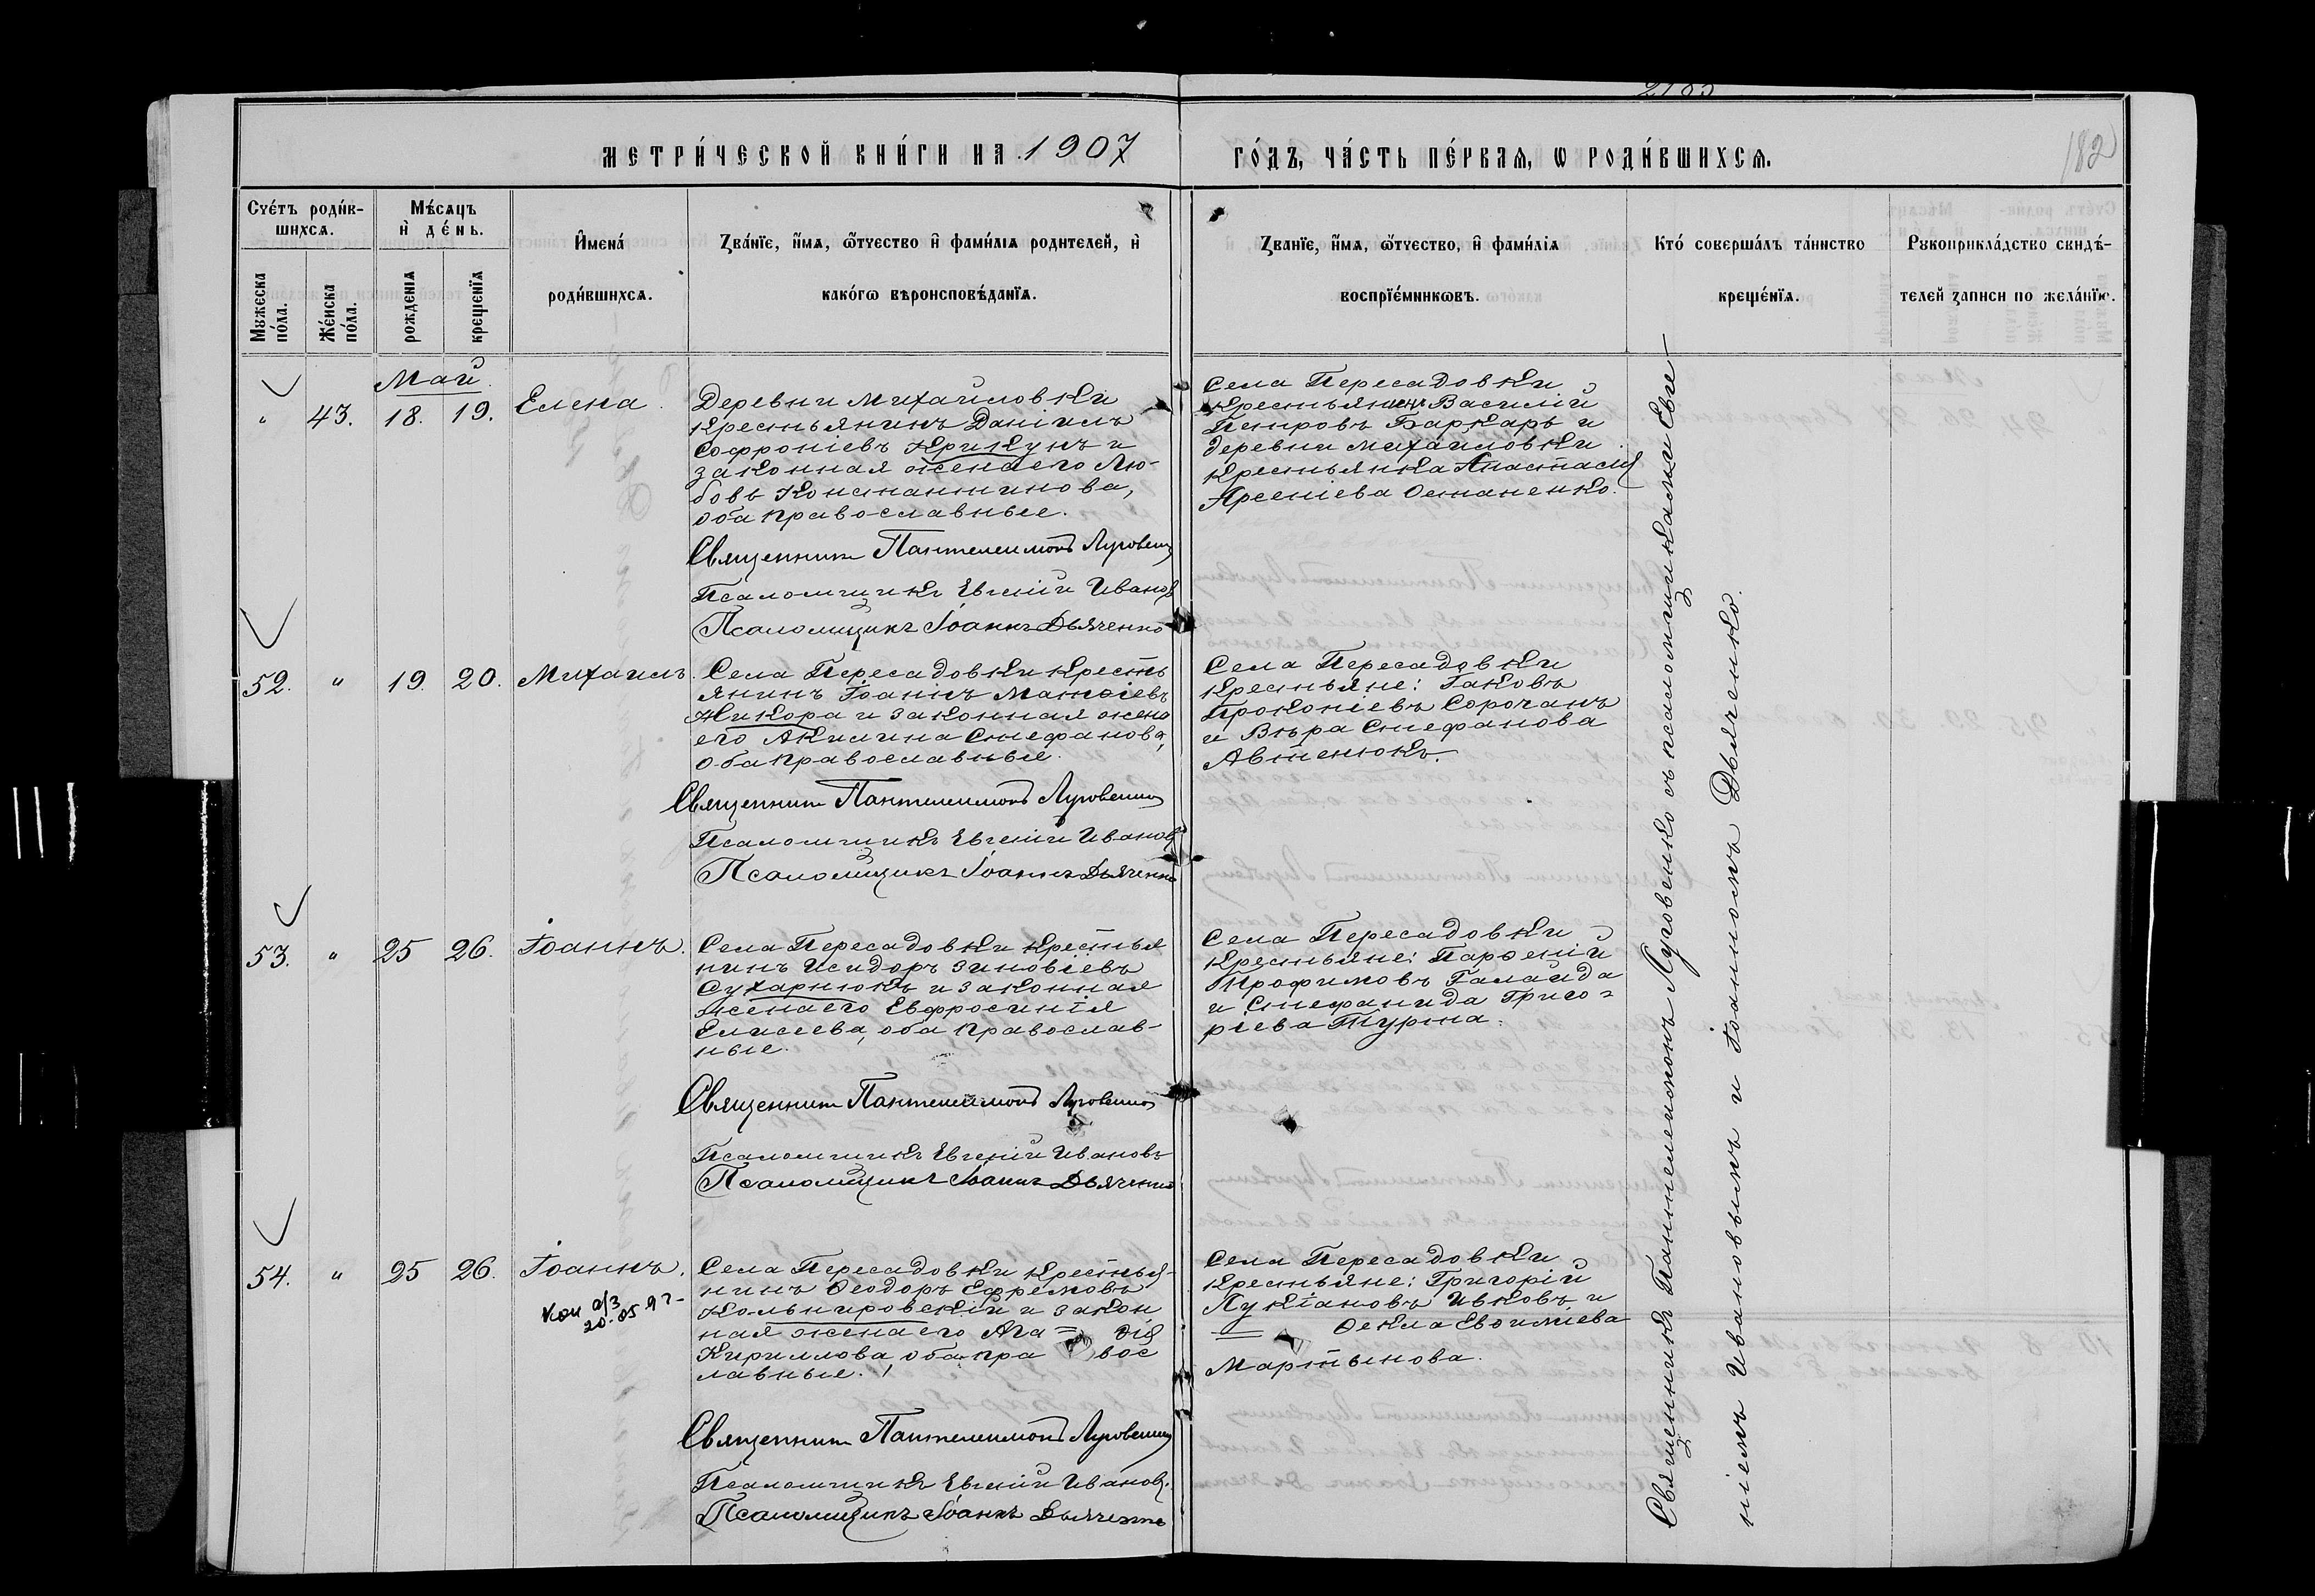 2183
МЕТРИ́ЧЕСКОЙ КНИ́ГИ НА 1907
ГО́ДЪ, ЧА́СТЬ ПЕ́РВАЯ, Ѡ РОДИ́ВШИХСѦ.
182
Сче́тъ роди́в-
шихсѧ.
Мꙋжеска
по́ла.
Же́нска
по́ла.
Мѣ́сѧцъ
и҆ де́нь.
рожденїѧ
крещенїѧ
И҆мена́
роди́вшихсѧ.
Зва́нїе, и҆́мѧ, ѻ҆́тчество и҆ фамѝлїѧ родителей, и҆
како́гѡ вѣроисповѣ́данїѧ.
Зва́нїе, и҆́мѧ, ѻ҆́тчество, и҆ фамѝлїѧ
воспрїе́мникѡвъ.
Кто́ соверша́лъ та́инство
креще́нїѧ.
Рꙋкоприкла́дство свидѣ́-
телей записи по жела́нїю.
Май
" 43. 18. 19. Елена.
Деревни Михайловки
крестьянинъ Даніилъ
Софроніевъ Крикунъ и
законная жена его Лю-
бовь Константинова,
оба православные.
Священник Пантелеимонъ Луговенко
Псаломщикъ Евгеній Ивановъ
Псаломщикъ Іоаннъ Дьяченко
Села Пересадовки
крестьянинъ Василій
Петровъ Баркарь и
деревни Михайловки
крестьянка Анастасія
Арсеніева Остапенко.
52. " 19. 20. Михаилъ.
Села Пересадовки кресть
янинъ Іоаннъ Матѳіевъ
Жикора и законная жена
его Акилина Стефанова,
оба православные.
Священник Пантелеимонъ Луговенко
Псаломщикъ Евгеній Ивановъ
Псаломщикъ Іоаннъ Дьяченко
Села Пересадовки
крестьяне: Іаковъ
Прокопіевъ Сорочанъ
и Вѣра Стефанова
Автенюкъ.
53. " 25 26. Іоаннъ.
Села Пересадовки крестья
нинъ Исидоръ Зиновіевъ
Сухарнюкъ и законная
жена его Евфросинія
Елисеева, оба православ-
ные.
Священник Пантелеимонъ Луговенко
Псаломщикъ Евгеній Ивановъ
Псаломщикъ Іоаннъ Дьяченко
Села Пересадовки
крестьяне: Парѳеній
Трофимовъ Галайда
и Стефанида Григо-
ріева Тюрина.
54. " 25 26. Іоаннъ.
20.05 97-
Села Пересадовки крестья-
нинъ Ѳеодоръ Ефремовъ
Кольнировскій и закон
ная жена его Ага= ѳія
Кириллова, оба пра вос
лавные.
Священник Пантелеимонъ Луговенко
Псаломщикъ Евгеній Ивановъ.
Псаломщикъ Іоаннъ Дьяченко
Села Пересадовки
крестьяне: Григорій
Лукіановъ Ивковъ и
Ѳекла Евѳиміева
Мартынова.
Священникъ Пантелеимонъ Луговенко съ псаломщиками Евге-
ніемъ Ивановымъ и Іоанномъ Дьяченко.